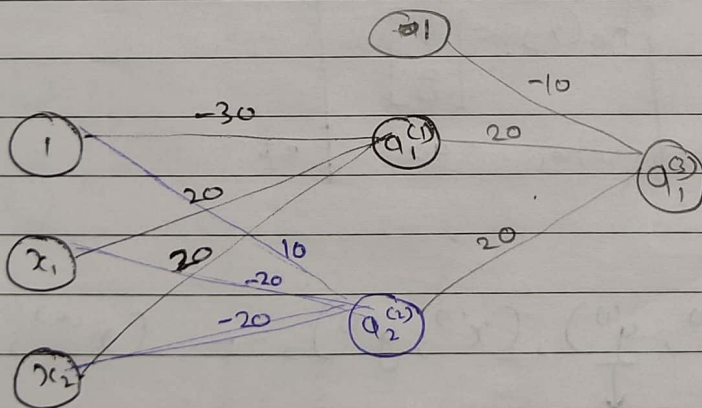 1
-10
-30
1
a₁⁽¹⁾
20
a₁⁽³⁾
20
x₁
20
10
20
-20
-20
a₂⁽²⁾
x₂